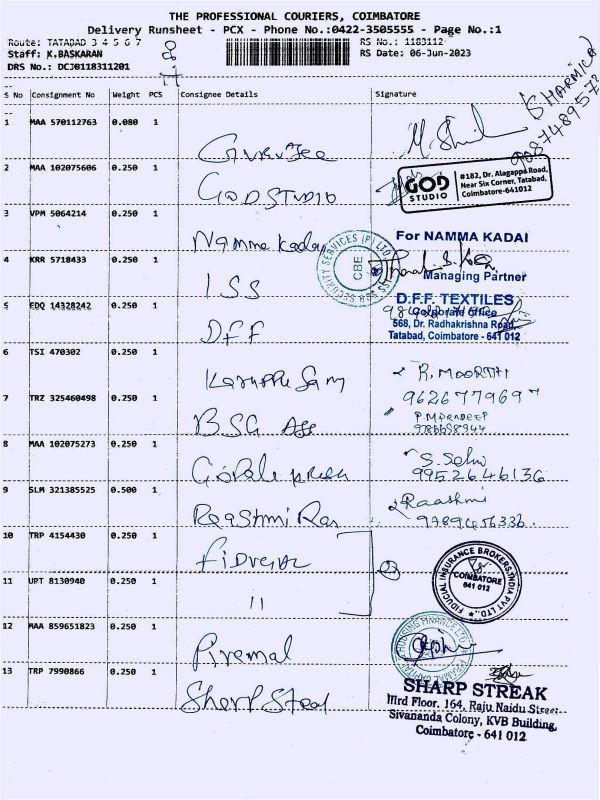 THE PROFESSIONAL COURIERS, COIMBATORE
Delivery Runsheet - PCX - Phone No.:0422-3505555 - Page No.:1
Route: TATABAD 3 4 5 6 7
RS No.: 1183112
Staff: K.BASKARAN
RS Date: 06-Jun-2023
DRS No.: DCJ0118311201
S No Consignment No Weight PCS Consignee Details Signature
1 MAA 570112763 0.080 1
SHARMICA
Gurujee
2 MAA 102075606 0.250 1
GOD STUDIO
GOD STUDIO
#182, Dr. Alagappa Road,
Near Six Corner, Tatabad,
Coimbatore-641012
3 VPM 5064214 0.250 1
Namma Kadai
For NAMMA KADAI
Managing Partner
4 KRR 5718433 0.250 1
ISS
SECURITY SERVICES (P) LTD
CBE
5 EDQ 14328242 0.250 1
DFF
D.F.F. TEXTILES
Corporate office
568, Dr. Radhakrishna Road,
Tatabad, Coimbatore - 641 012
6 TSI 470302 0.250 1
Karuppu Samy
R. MOORTHI
9626779697
7 TRZ 325460498 0.250 1
BSG Ass
P. MPRADEEP
8 MAA 102075273 0.250 1
S. Selvi
9952646136
9 SLM 321385525 0.500 1
Raashmi Rar
Raashmi
10 TRP 4154430 0.250 1
FIDUCIAL INSURANCE BROKERS INDIA PVT LTD.
COIMBATORE
641 012
11 UPT 8130940 0.250 1
11
12 MAA 859651823 0.250 1
Piremal
HOUSING FINANCE LTD
13 TRP 7990866 0.250 1
Sharp Streak
SHARP STREAK
IIIrd Floor, 164, Raju Naidu Street
Sivananda Colony, KVB Building,
Coimbatore - 641 012